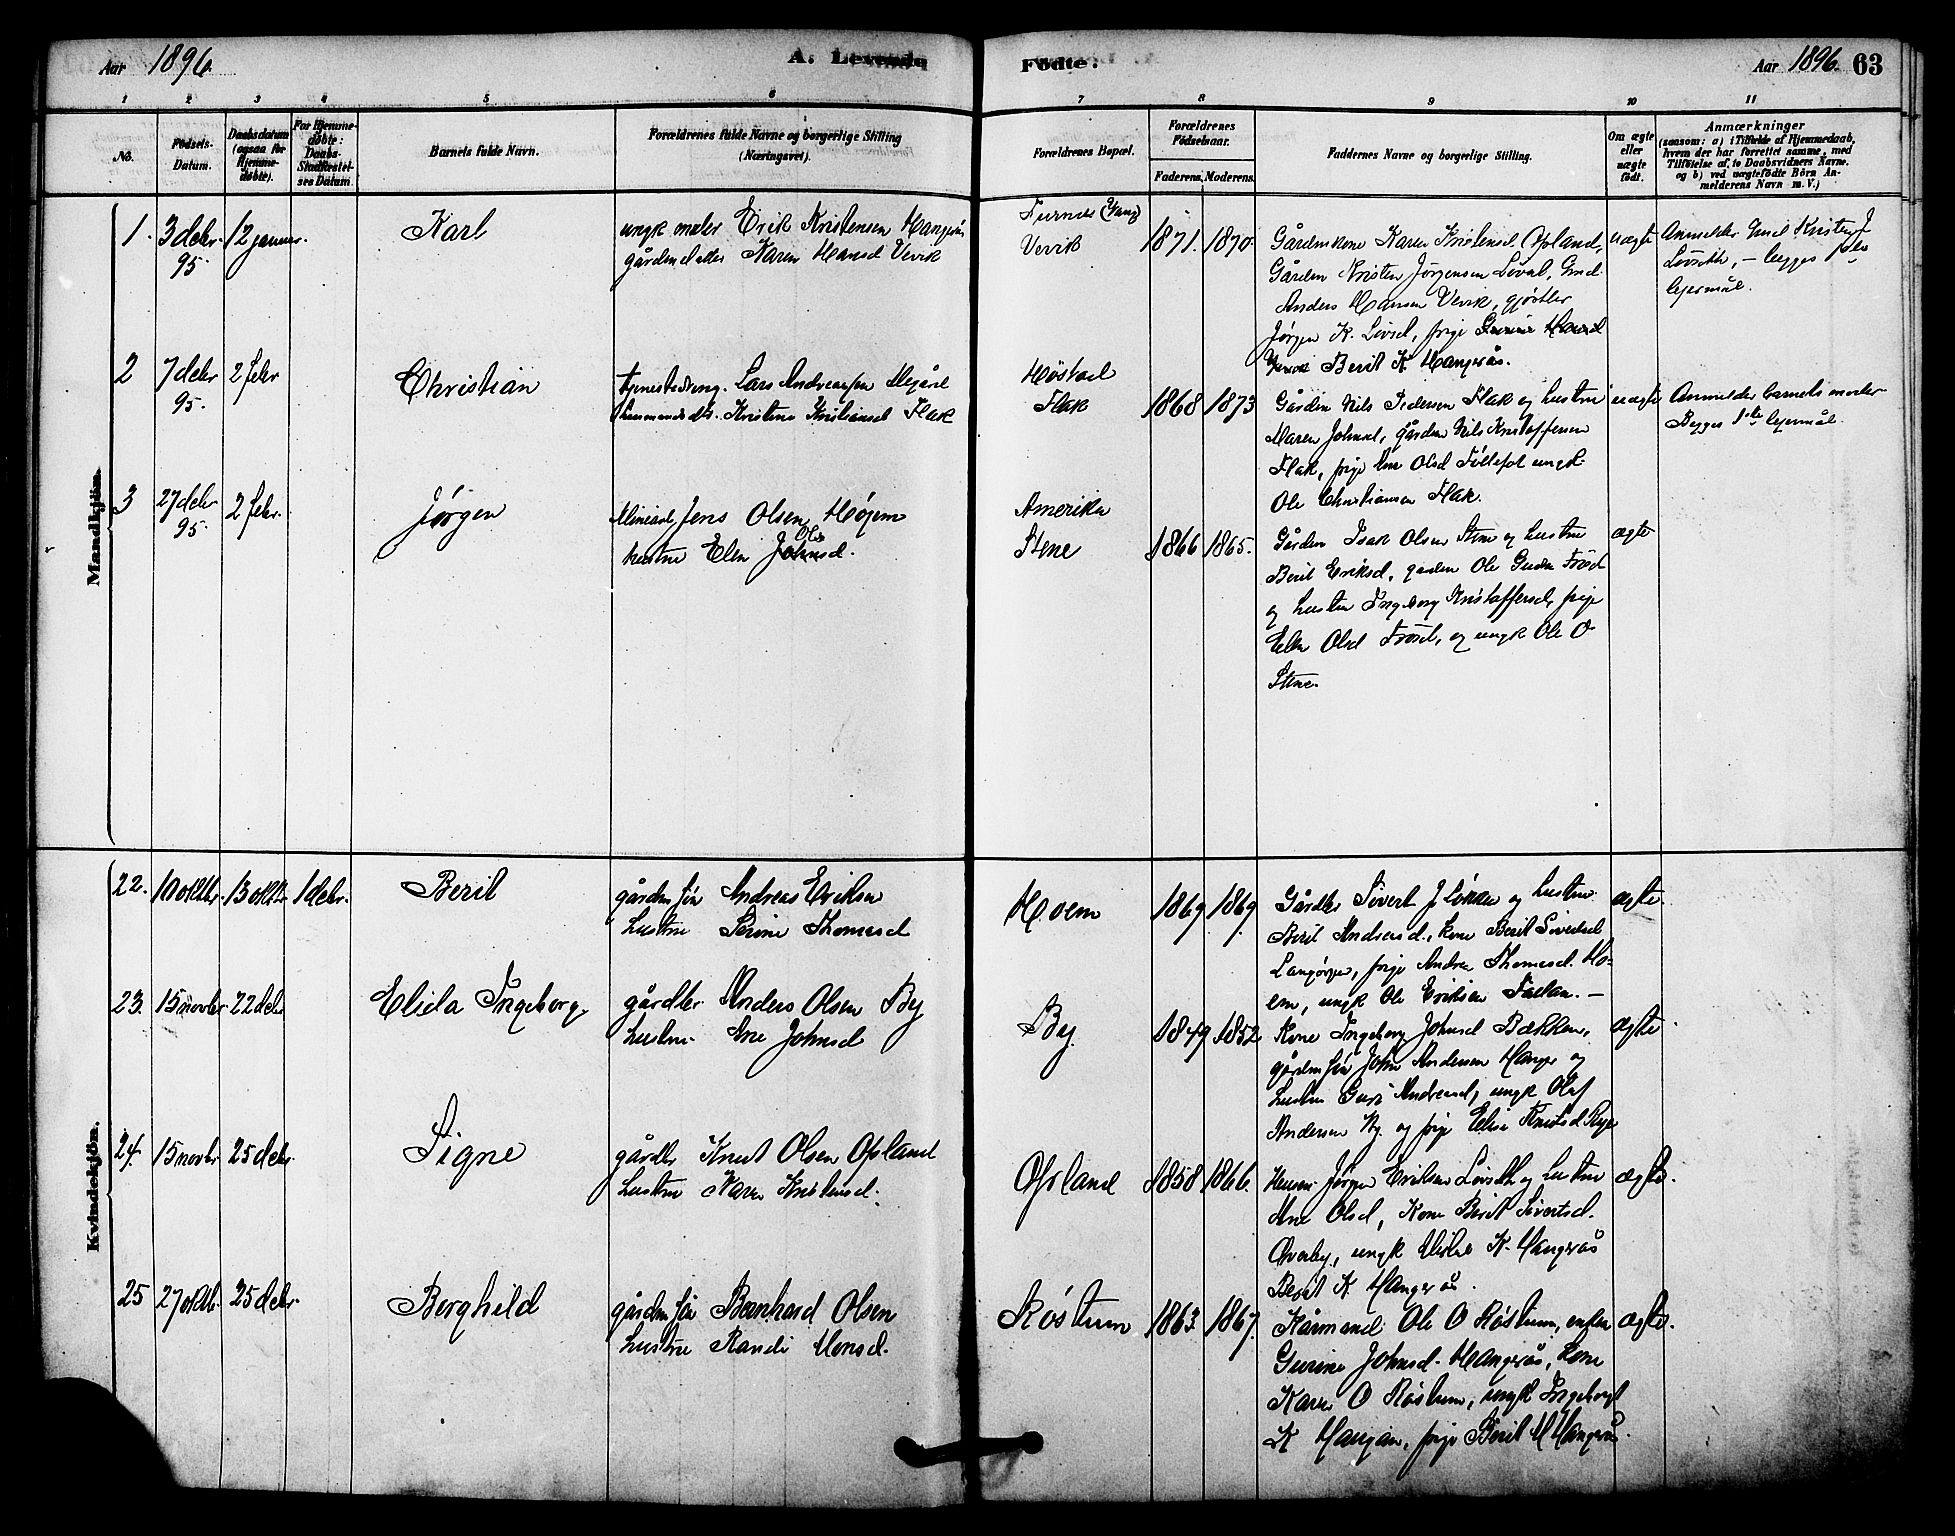 Aar 1896
A. Levende
Födte.
Aar 1896. 63
1 2 3 4 5 6 7 8 9 10 11
No.
Födsels-
Datum.
Daabsdatum
(ogsaa for
Hjemme-
døbte).
For Hjemme-
døbte:
Daabs-
Stadfæstel-
ses Datum.
Barnets fulde Navn.
Forældrenes fulde Navne og borgerlige Stilling
(Næringsvei).
Forældrenes Bopæl.
Forældrenes
Fødselsaar.
Faderens. Moderens.
Faddernes Navne og borgerlige Stilling.
Om ægte
eller
uægte
født.
Anmærkninger
(saasom: a) i Tilfælde af Hjemmedaab,
hvem der har forrettet samme, med
Tilføielse af to Daabsvidners Navne.
og b) ved uægtefödte Börn An-
melderens Navn m. V.)
Mandkjön.
1. 3 debr. 12 januar.
95.
Karl
ungk Erik Kristensen Hangerås
Karen Hansd Vevik
Furnes (Vang)
Vevik
1871. 1870.
Gårdmkone Karen Kristensd. Opland,
Gårdm Kristen Jørgensen
Anders Hansen Vevik, gjørtler
Jørgen K. pige
Berit K. Hangerås.
uægte
Anmelder
begges
lejermål.
2 7 debr 2 febr
95.
Christian
Lars Andreassen
Kristine Kristiansd Flak
Høstad
Flak
1868 1873
Gårdm Nils Pedersen Flak og hustru
Maren Johnsd, gårdm Nils Kristoffersen
Flak, pige Ane Olsd ungk.
Ole Christiansen Flak.
uægte
Anmelder barnets moder
Begges 1ste lejermål.
3 27 debr 2 febr.
95.
Jørgen
Jens Olsen Høgem
hustru Elen Johnsd.
Ols
Amerika
Stene
1866 1865.
Gårdm Isak Olsen Stene og hustru
Berit Eriksd, gårdm Ole
og hustru Ingeborg Kristoffersd, pige
Elen Olsd og ungk Ole O.
Stene.
ægte
Kvindekjön.
22. 10 oktbr. 13 oktbr 1 debr.
Berit
gårdm Andreas Eriksen
hustru Serine Thomasd
Hoem
1869 1869.
Gårdbr Sivert J Løkken og hustru
Berit Andreasd., kone Berit Sivertsd
Langørgen, pige Andrea Thomasd. Ho-
em, ungk Ole Eriksen
ægte.
23. 15 novbr 22 debr
Elida Ingeborg.
gårdbr Anders Olsen By
hustru. Ane Johnsd
By.
1849 1852.
Kone Ingeborg Johnsd Bækken,
John Andersen Hanger og
hustru Guri Andreasd, ungk Olaf
Andersen By. og pige Elise Knutsd Rye
ægte.
24. 15 novbr 25 debr.
Signe
gårdbr Knut Olsen Opland
hustru Karen Kristensd.
Opland
1858 1866.
Jørgen Eriksen og hustru
Ane Olsd, Kone Berit Sivertsd.
Overby, ungk K. Hangerås
Berit K Hangerås.
ægte.
25 27 oktb. 25 debr.
Borghild
gårdm Bernhard Olsen
hustru Randi Monsd.
Røstum
1863 1867.
Kårmand Ole O Røstum, enken
Gurine Johnsd. Hangerås, Kone
Karen O Røstum, ungk Ingebrigt
K pige Berit Hangerås.
ægte.